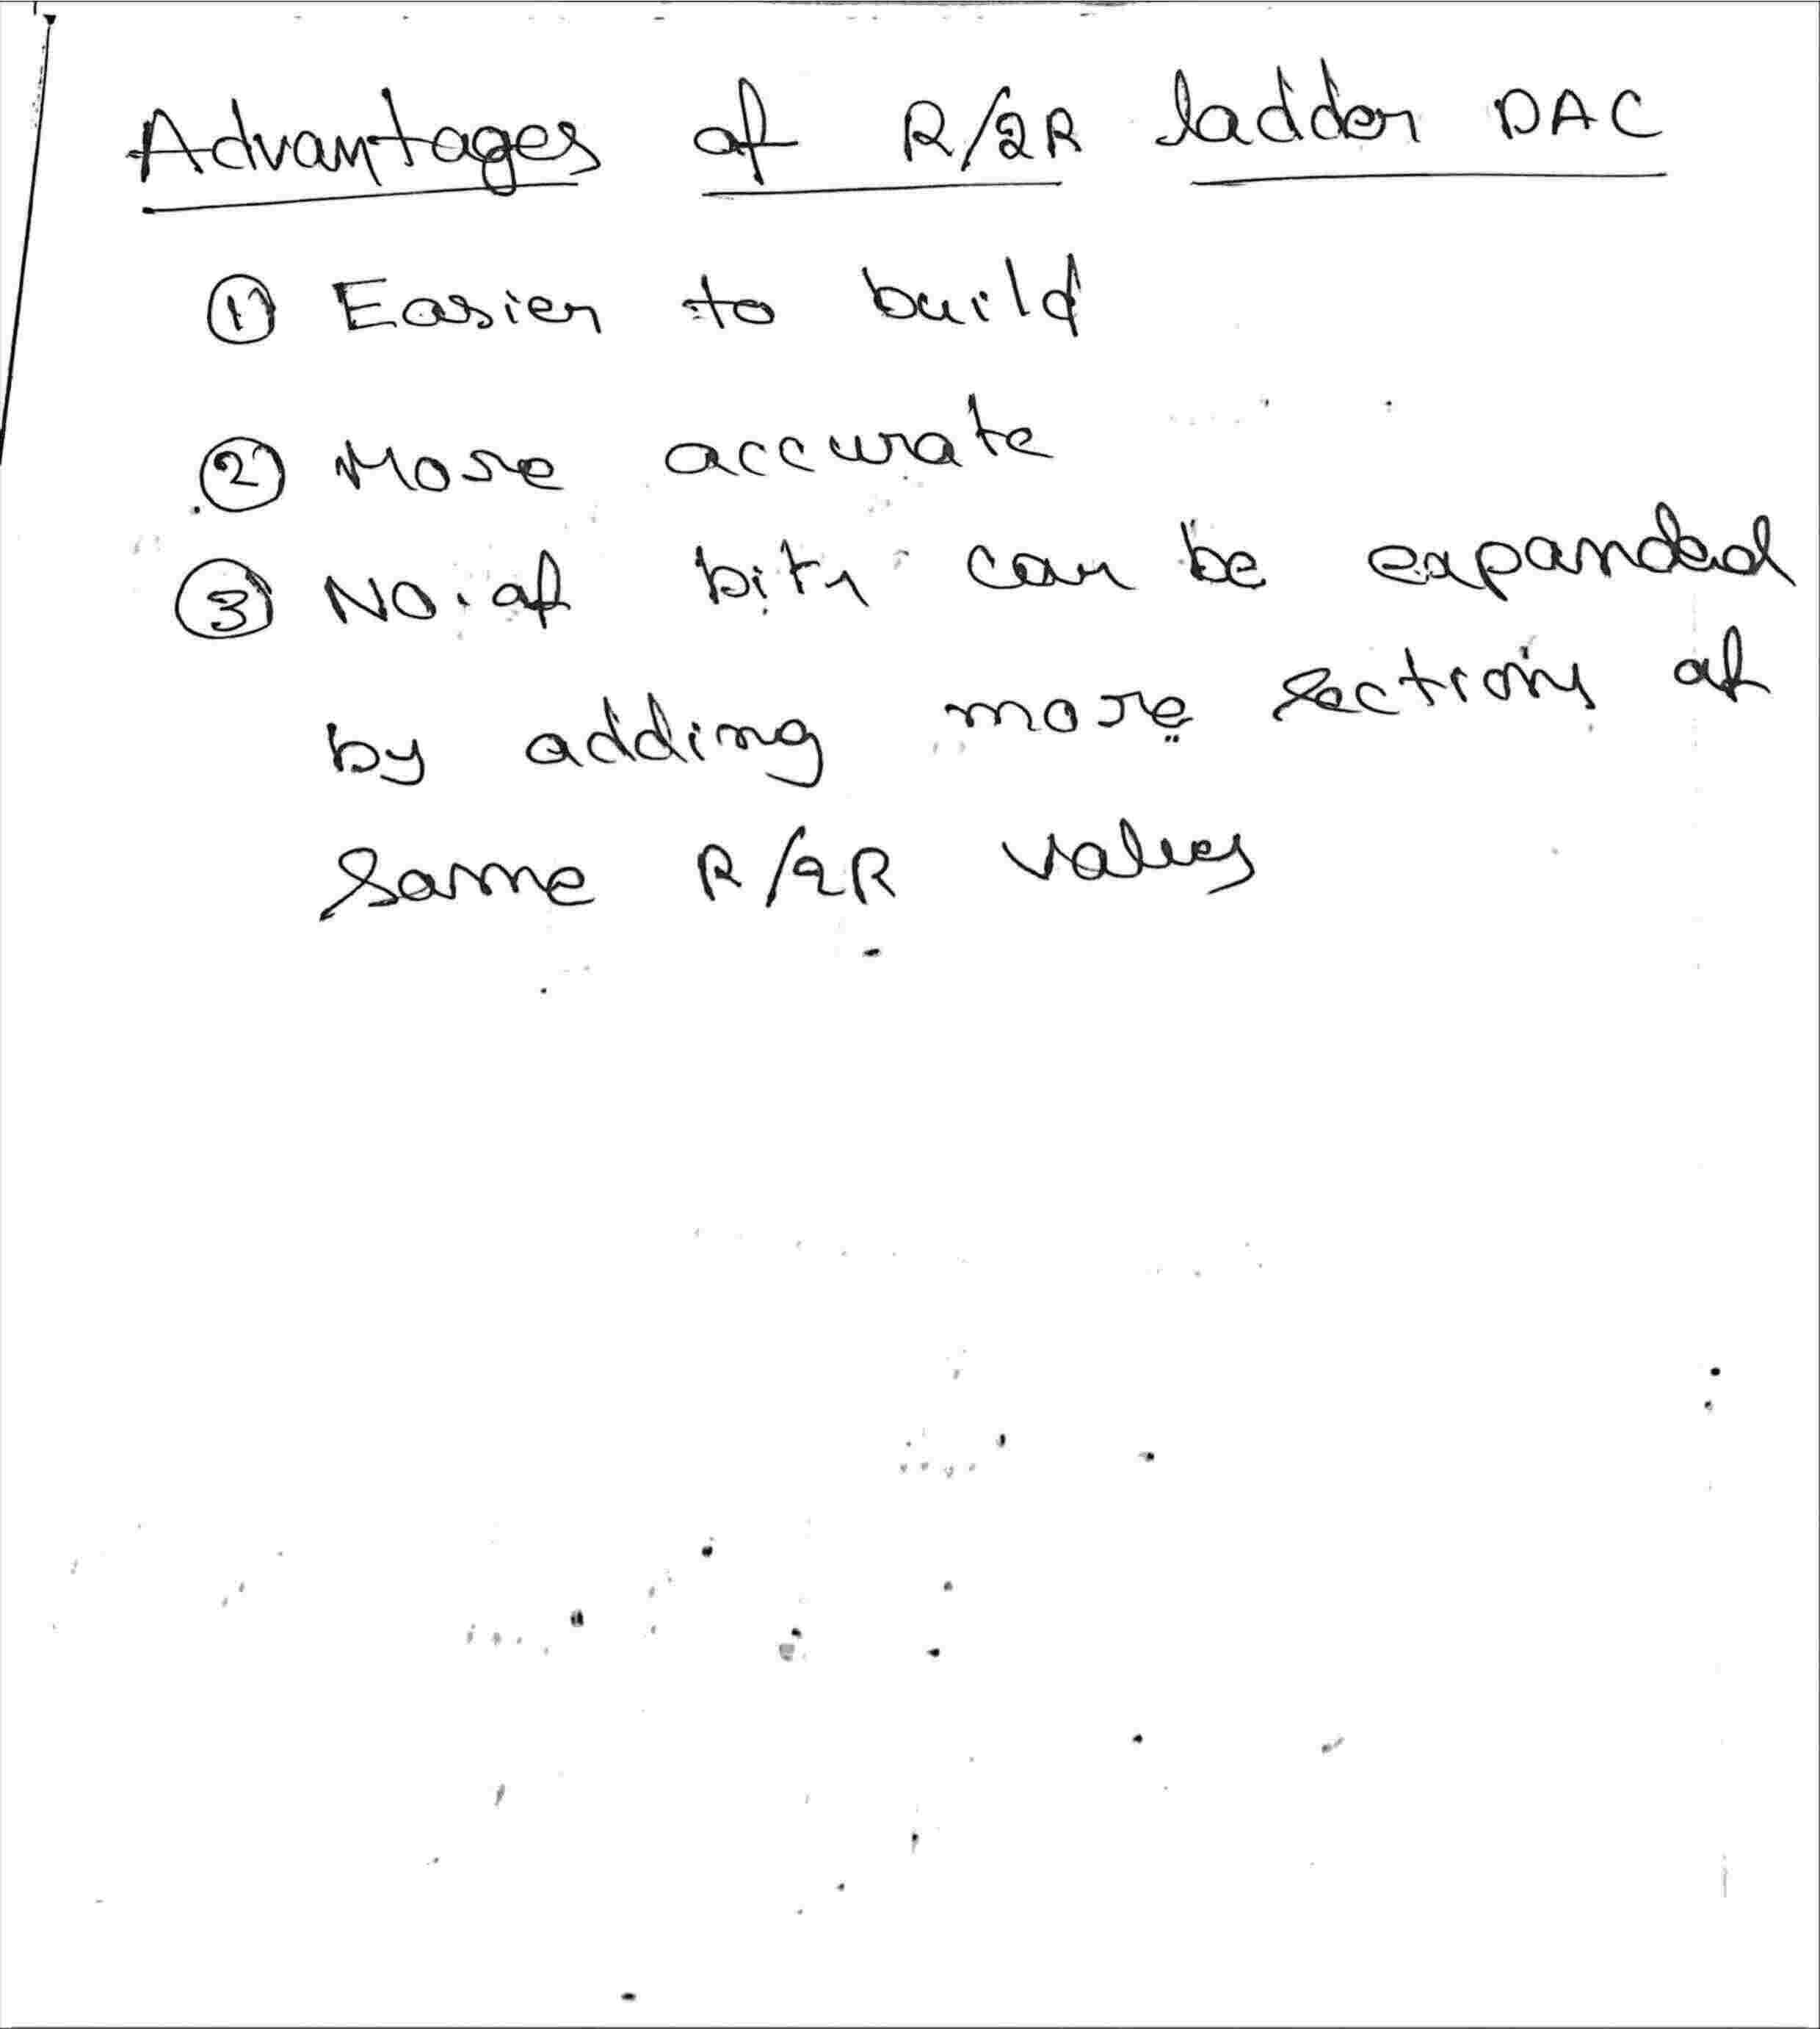 Advantages of R/2R ladder DAC
① Easier to build
② More accurate
③ No. of bits can be expanded
by adding more sections of
same R/2R values